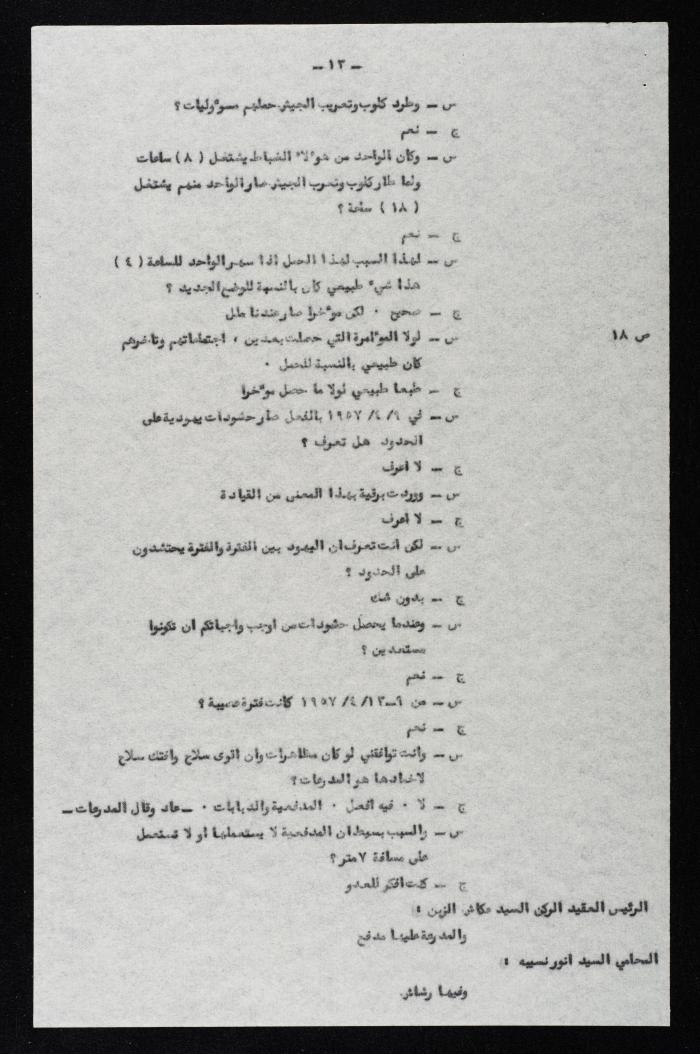 ــ ١٣ ــ
س ــ وطرد كلوب وتعريب الجيش حملهم مسؤوليات ؟
ج ــ نعم
س ــ وكان الواحد من هؤلاء الضباط يشتغل ( ٨ ) ساعات
ولما طار كلوب وتعرب الجيش صار الواحد منهم يشتغل
( ١٨ ) ساعة ؟
ج ــ نعم
س ــ لهذا السبب لهذا العمل اذا سهر الواحد للساعة ( ٤ )
هذا شيء طبيعي كان بالنسبة للوضع الجديد ؟
ج ــ صحيح ٠ لكن مؤخرا صار عندنا ملل
ص ١٨ س ــ لولا المؤامرة التي حصلت بعدين ، اجتماعاتهم وتاخرهم
كان طبيعي بالنسبة للعمل ٠
ج ــ طبعا طبيعي لولا ما حصل مؤخرا
س ــ في ٩ /٤ /١٩٥٧ بالفعل صار حشودات يهودية على
الحدود هل تعرف ؟
ج ــ لا اعرف
س ــ ووردت برقية بهذا المعنى من القيادة
ج ــ لا اعرف
س ــ لكن انت تعرف ان اليهود بين الفترة والفترة يحتشدون
على الحدود ؟
ج ــ بدون شك
س ــ وعندما يحصل حشودات من اوجب واجباتكم ان تكونوا
مستعدين ؟
ج ــ نعم
س ــ من ٩ــ١٣/ ٤/ ١٩٥٧ كانت فترة عصيبة ؟
ج ــ نعم
س ــ وانت توافقني لو كان مظاهرات وان اقوى سلاح وافتك سلاح
لاخمادها هو المدرعات ؟
ج ــ لا ٠ فيه افضل ٠ المدفعية والدبابات ٠ ــ عاد وقال المدرعات ــ
س ــ والسبب بسيط ان المدفعية لا يستعملها او لا تستعمل
على مسافة ٧ متر ؟
ج ــ كنت افكر للعدو
الرئيس العقيد الركن السيد عكاش الزبن :
والمدرعة عليها مدفع
المحامي السيد انور نسيبه :
وفيها رشاش